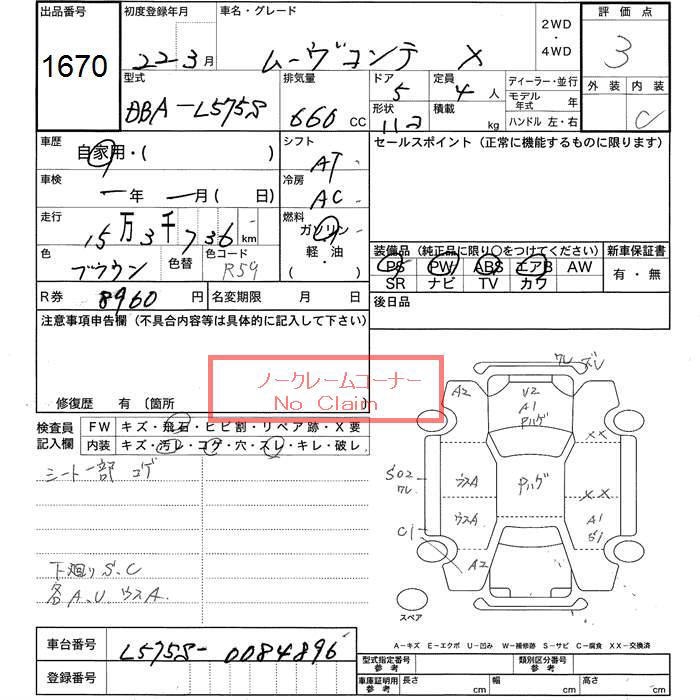 出品番号 初度登録年月 車名・グレード 2WD・4WD 評価点
1670 22-3月 ムーヴコンテ X 3
型式 排気量 ドア 定員 ディーラー・並行 外装 内装
DBA-L575S 660cc 5 4人 モデル年式 年 C
形状 積載 kg ハンドル 左・右
車歴 シフト セールスポイント(正常に機能するものに限ります)
自家用・( ) AT
車検 冷房
一年 一月( 日) AC
走行 燃料
15万3千736km ガソリン
色 色替 色コード 軽・油
ブラウン R59 ・( )
装備品(純正品に限り○をつけてください) 新車保証書
PS PW ABS エアB AW 有・無
SR ナビ TV カワ
R券 8960円 名変期限 月 日 後日品
注意事項申告欄(不具合内容等は具体的に記入して下さい)
ノークレームコーナー
No Claim
修復歴 有 〔箇所
検査員記入欄 FW キズ・飛石・ヒビ割・リペア跡・X要
内装 キズ・汚レ・コゲ・穴・スレ・キレ・破レ
シート一部 コゲ
下廻りS.C
各A.U.ウスA.
ワレ ズレ
A2 U2
A1
Pハゲ
XX
S02 ワレ ウスA Pハゲ XX
C1 ウスA A1
S1
A2
スペア
A-キズ E-エクボ U-凹み W-補修跡 S-サビ C-腐食 XX-交換済
車台番号 L575S-0084896
登録番号
型式指定番号 参考 類別区分番号 参考
車庫証明用 参考 長さ cm 幅 cm 高さ cm